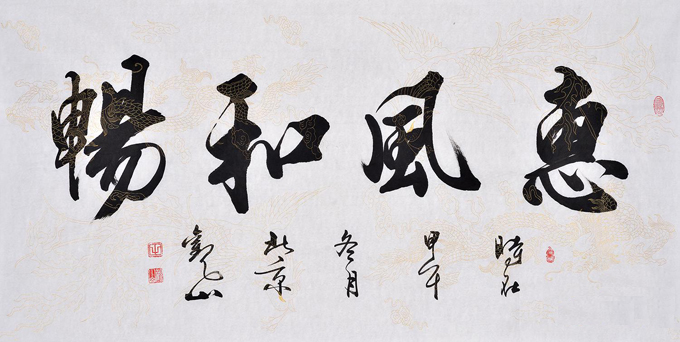 惠風和暢
時在
甲午
冬月
北京